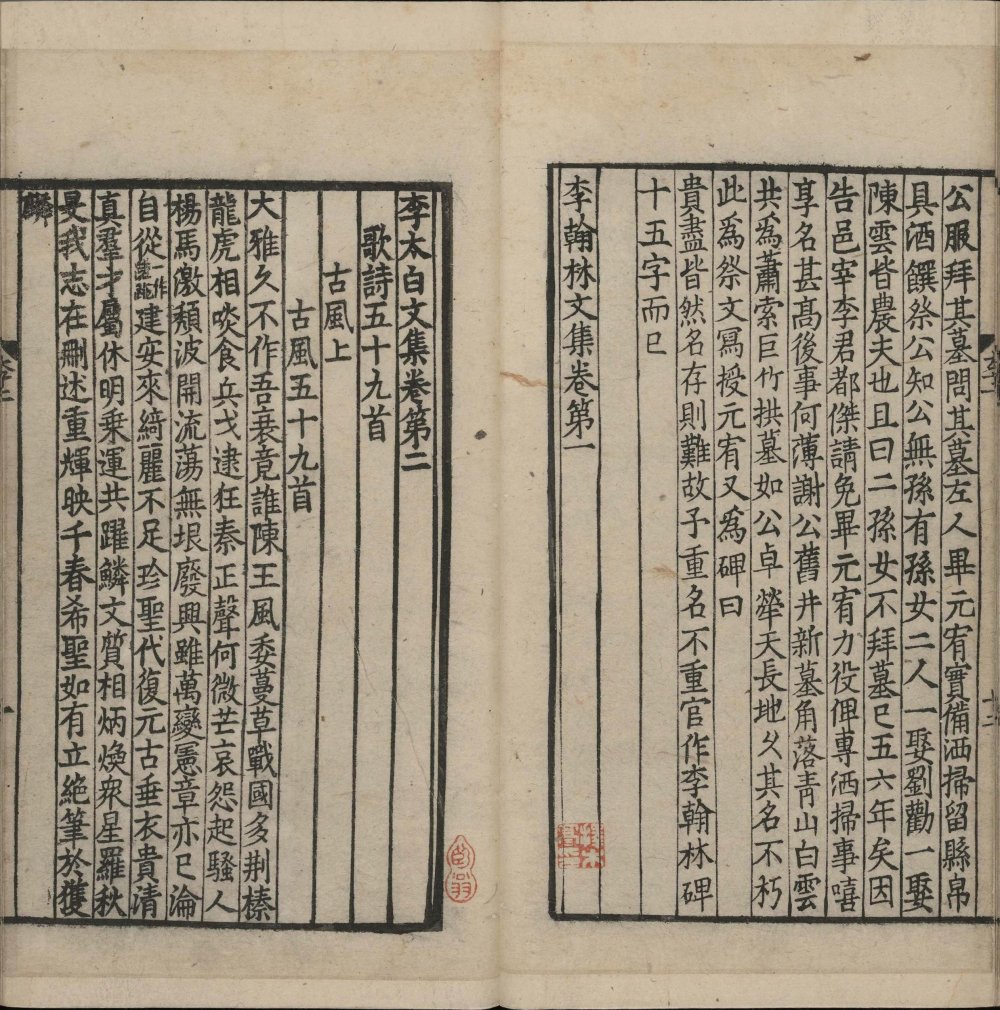 公服拜其墓問其墓左人畢元宥實備洒掃留縣帛
具酒饌祭公知公無孫有孫女二人一娶劉勸一娶
陳雲皆農夫也且曰二孫女不拜墓已五六年矣因
告邑宰李君都傑請免畢元宥力役俾專洒掃事嘻
享名甚髙後事何薄謝公舊井新墓角落青山白雲
共為蕭索巨竹拱墓如公卓犖天長地久其名不朽
此為祭文寫授元宥又為碑曰
貴盡皆然名存則難故予重名不重官作李翰林碑
十五字而已
李翰林文集卷第一
李太白文集卷第二
歌詩五十九首
古風上
古風五十九首
大雅久不作吾衰竟誰陳王風委蔓草戰國多荆榛
龍虎相啖食兵戈逮狂秦正聲何微茫哀怨起騷人
楊馬激頽波開流蕩無垠廢興雖萬變憲章亦已淪
自從一作蹉跎建安來綺麗不足珍聖代復元古垂衣貴清
真羣才屬休明乗運共躍鱗文質相炳煥衆星羅秋
旻我志在刪述重輝映千春希聖如有立絶筆於獲
麟